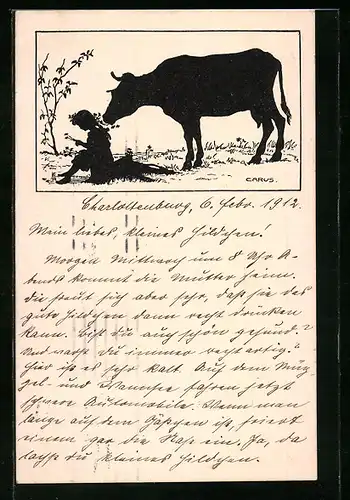 CARUS.
Charlottenburg, 6. Febr. 1912.
Mein liebes, kleines Hildchen!
Morgen Mittwoch um 8 Uhr A-
bends kommt die Mutter heim.
Die freut sich aber sehr, daß sie das
gute Hildchen dann recht drücken
kann. Bist du auch schön gesund?
Und warst du immer recht artig?
Hier ist es sehr kalt. Auf dem Müg-
gel- und Wannsee fahren jetzt
schwere Automobile. Wenn man
länge auf den ist, friert
einem gar die Nase ein. Ja, da
lachst du kleines Hildchen.